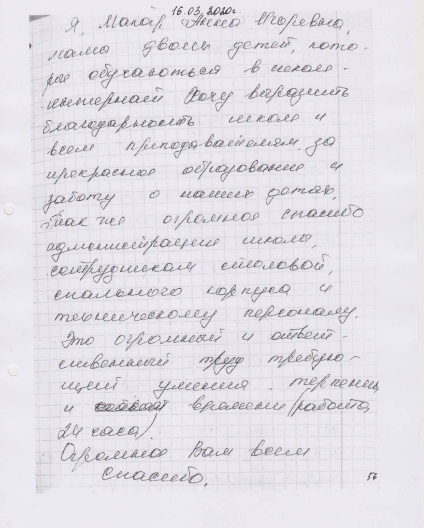 16.03.2020г.
Я, Мапар Анна Игоревна,
мама двоих детей, кото-
рые обучаються в школе-
интернат Хочу выразить
благодарность школе и
всем преподавателям за
прекрасное образование и
заботу о наших детях,
Так же огромное спасибо
администрации школы,
сотрудникам столовой,
спального корпуса и
техническому персоналу.
Это огромный и ответ-
ственный труд требую-
щий умения, терпения
и времени (работа
24 часа).
Огромное Вам всем
спасибо.
56